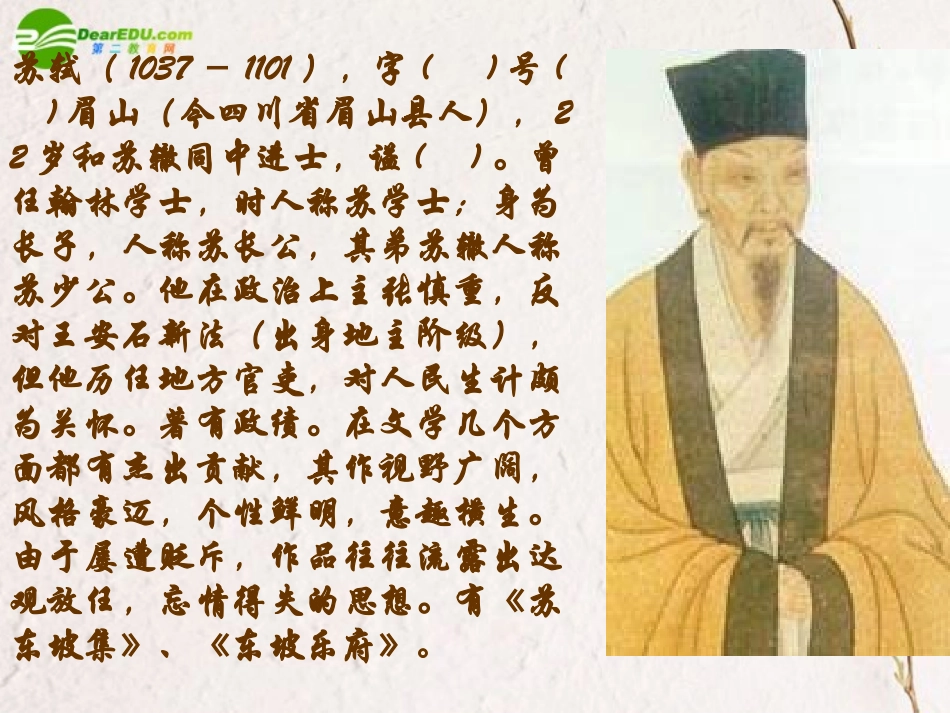 DearEDU.com
第二教育网
苏轼（1037－1101），字（　）号（
）眉山（今四川省眉山县人），2
2岁和苏辙同中进士，谥（　）。曾
任翰林学士，时人称苏学士；身为
长子，人称苏长公，其弟苏辙人称
苏少公。他在政治上主张慎重，反
对王安石新法（出身地主阶级），
但他历任地方官吏，对人民生计颇
为关怀。著有政绩。在文学几个方
面都有杰出贡献，其作视野广阔，
风格豪迈，个性鲜明，意趣横生。
由于屡遭贬斥，作品往往流露出达
观放任，忘情得失的思想。有《苏
东坡集》、《东坡乐府》。